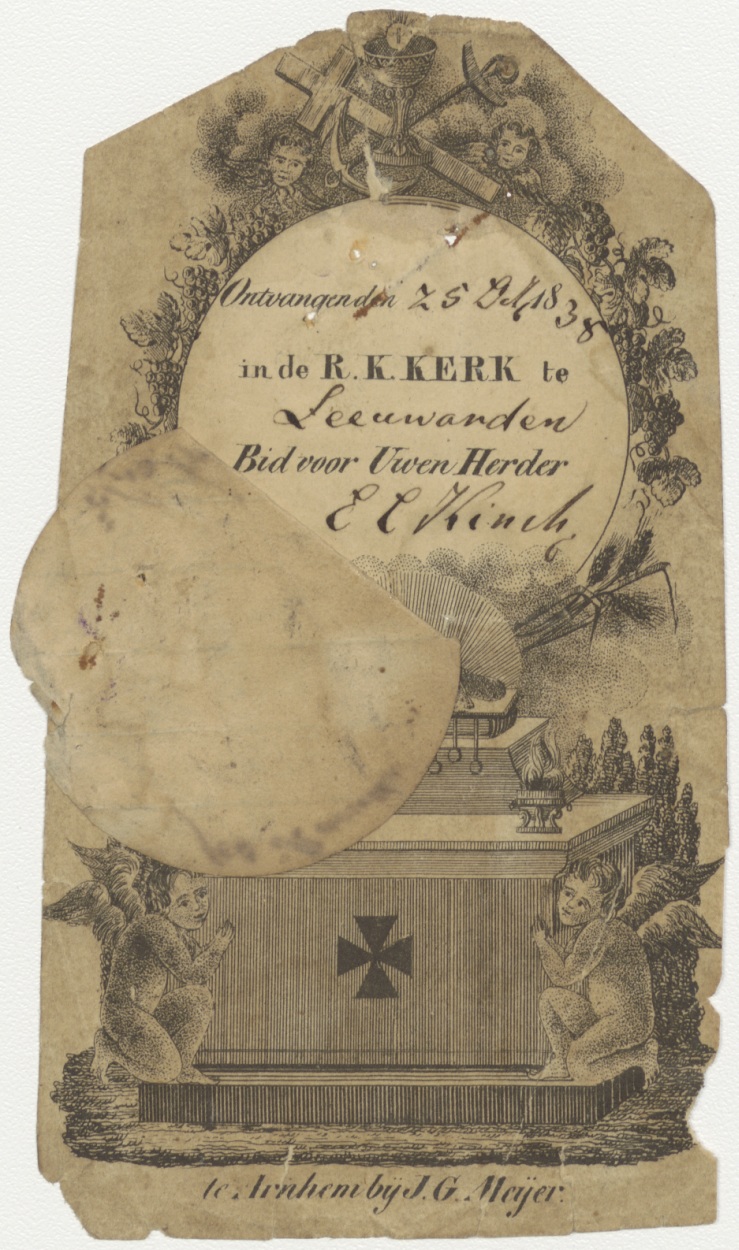 Ontvangen den 25 Oct 1838
in de R. K. KERK te
Leeuwarden
Bid voor Uwen Herder
E C Kinch
te Arnhem bij J. G. Meijer.